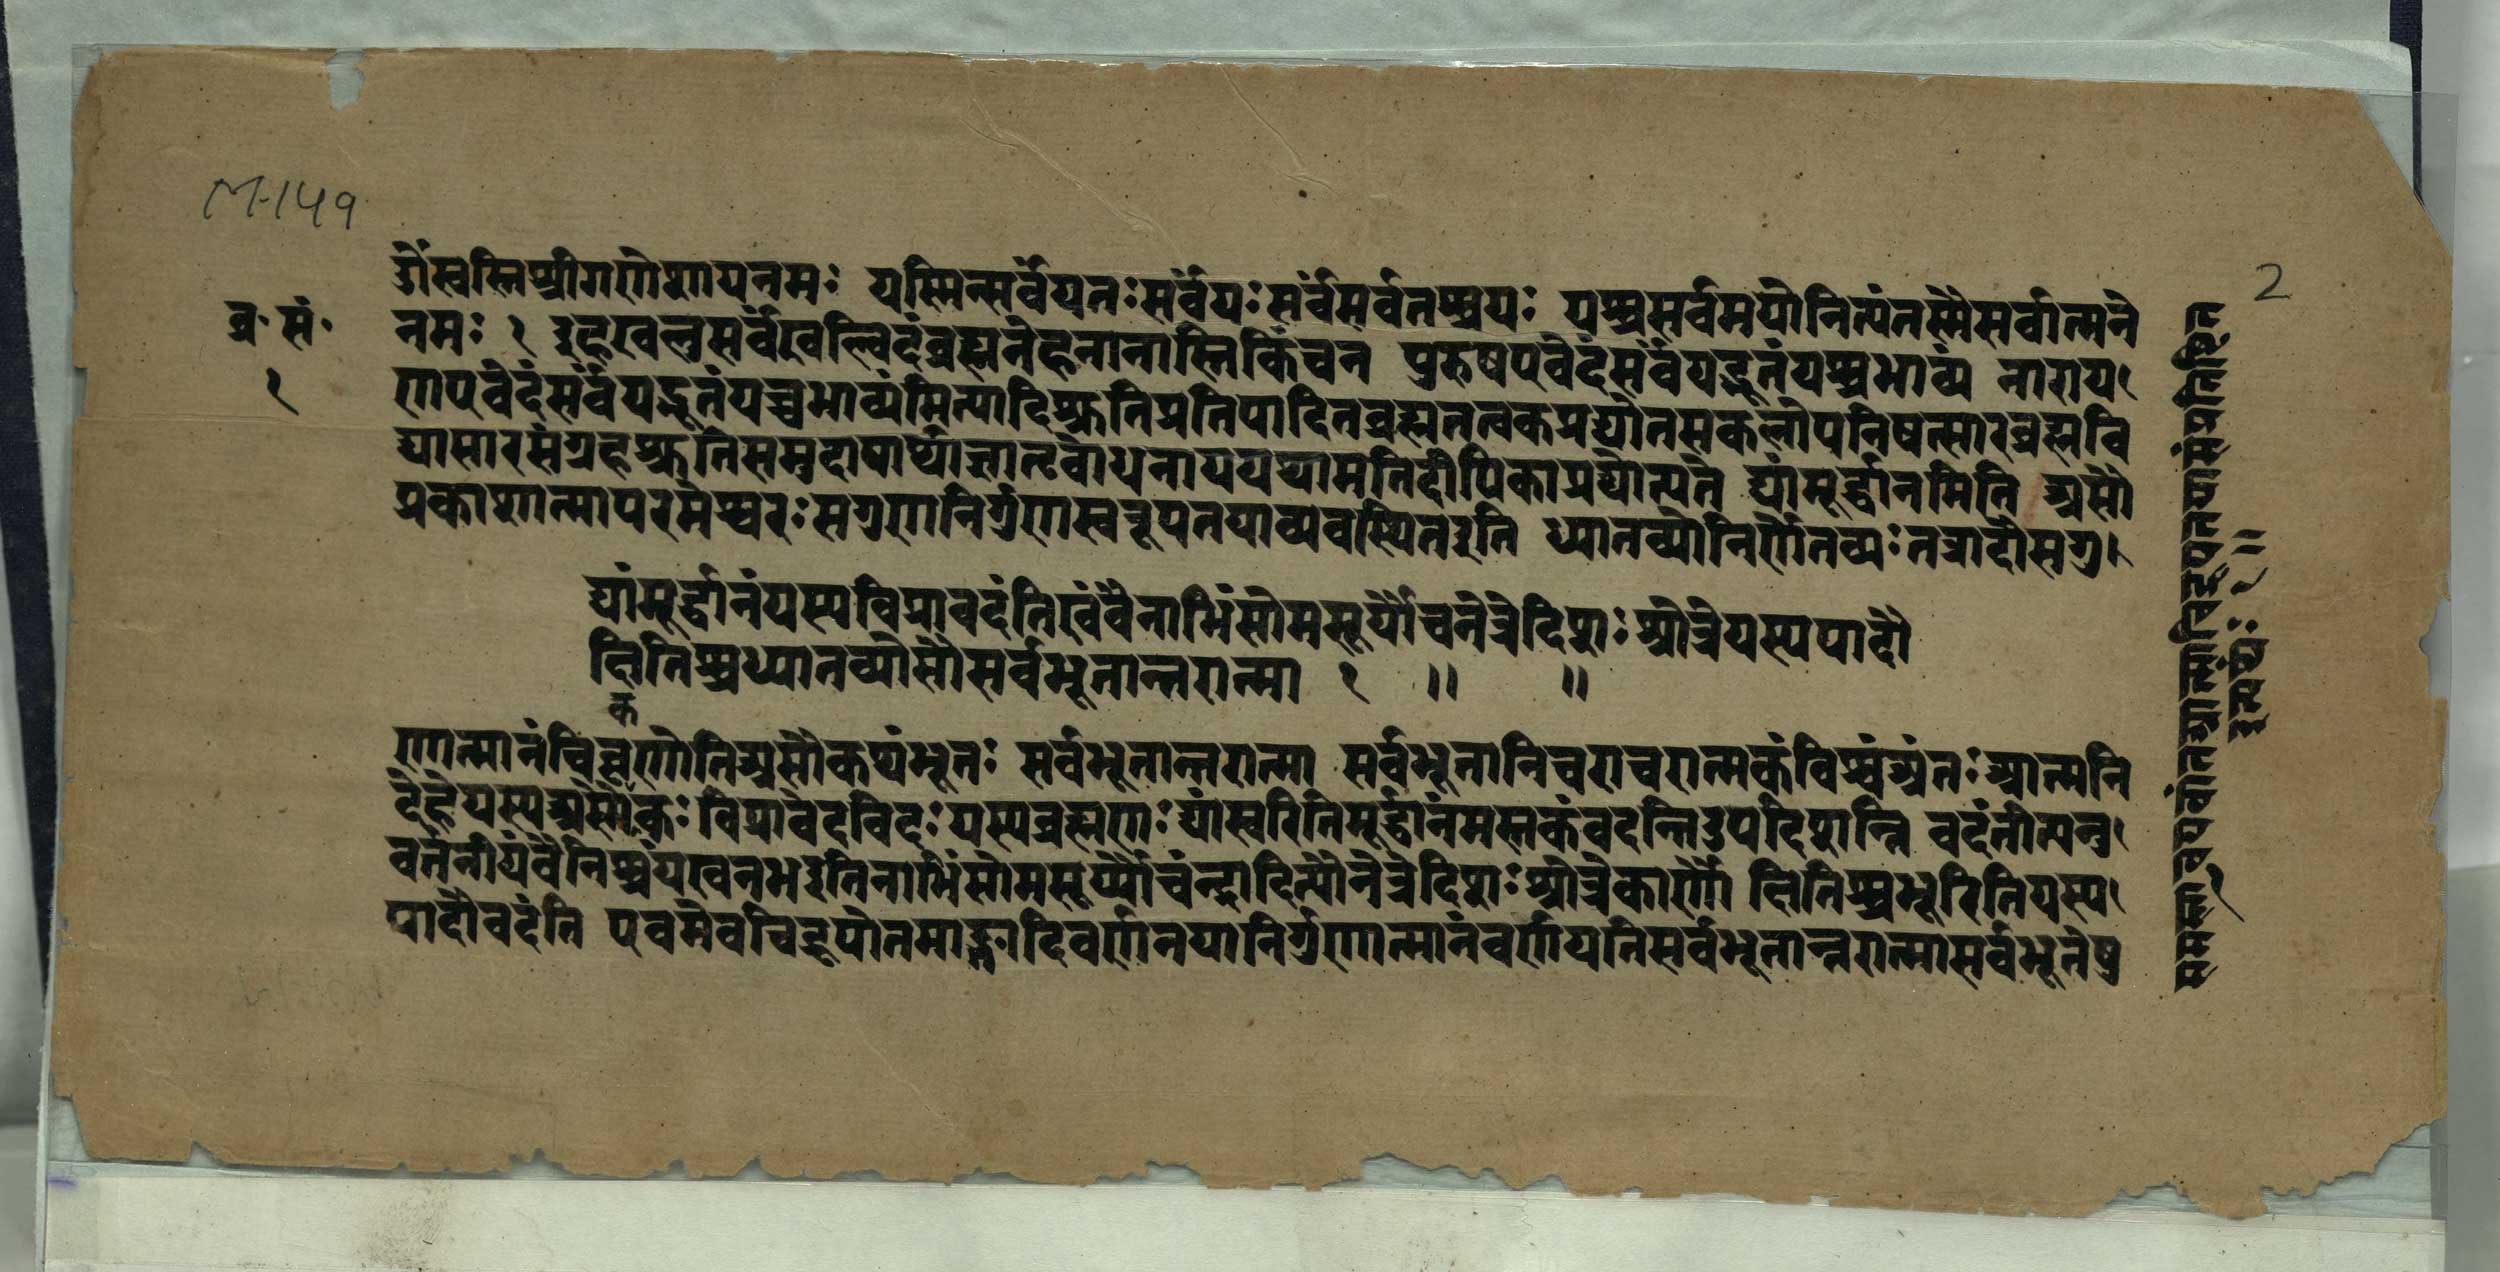 M-149
2
ओंस्वस्तिश्रीगणेशायनमः यस्मिन्सर्वंयतःसर्वंयःसर्वंसर्वतश्चयः यश्चसर्वमयोनित्यंतस्मैसर्वात्मने
व्र॰सं॰
नमः १ इहखलुसर्वंखल्विदंब्रह्मनेहनानास्तिकिंचन पुरुषएवेदंसर्वंयद्भूतंयश्चभाव्यं नाराय
१
णएवेदंसर्वंयद्भूतंयच्चभाव्यंमित्यादिश्रुतिप्रतिपादितब्रह्मतत्वकप्रद्योतसकलोपनिषत्सारब्रह्मवि
द्यासारसंग्रहश्रुतिसमुदाय यथामतिदीपिकाप्रद्योत्यते द्यांमूर्द्धानमिति असौ
प्रकाशात्मापरमेश्वरःसगुणनिर्गुणस्वरूपतयाव्यवस्थितइति ध्यातव्योनिर्णेतव्यःतत्रादौसगु
द्यांमूर्द्धानंयस्यविप्रावदंतिखंवैनाभिंसोमसूर्यौचनेत्रेदिशःश्रोत्रेयस्यपादौ
क्षितिश्चध्यातव्योसौसर्वभूतान्तरात्मा १ ॥ ॥
क
णात्मानंविवृणोतिअसौकथंभूतः सर्वभूतान्तरात्मा सर्वभूतानिचराचरात्मकंविश्वंअंतःआत्मनि
देहेयस्यअसौकःविप्रावेदविदःयस्यब्रह्मणःद्यांस्वरितिमूर्द्धानंमस्तकंवदन्तिउपदिशन्ति वदंतीत्यनु
वर्तनीयंवैनिश्चयंखंनभइतिनाभिंसोमसूर्य्यौचंन्द्रादित्यौनेत्रेदिशःश्रोत्रेकार्णौ क्षितिश्चभूरितियस्य
पादौवदंति एवमेवचिद्रूपोतमाङ्गादिवर्णनयानिर्गुणात्मानंवर्णयतिसर्वभूतान्तरात्मासर्वभूतेषु